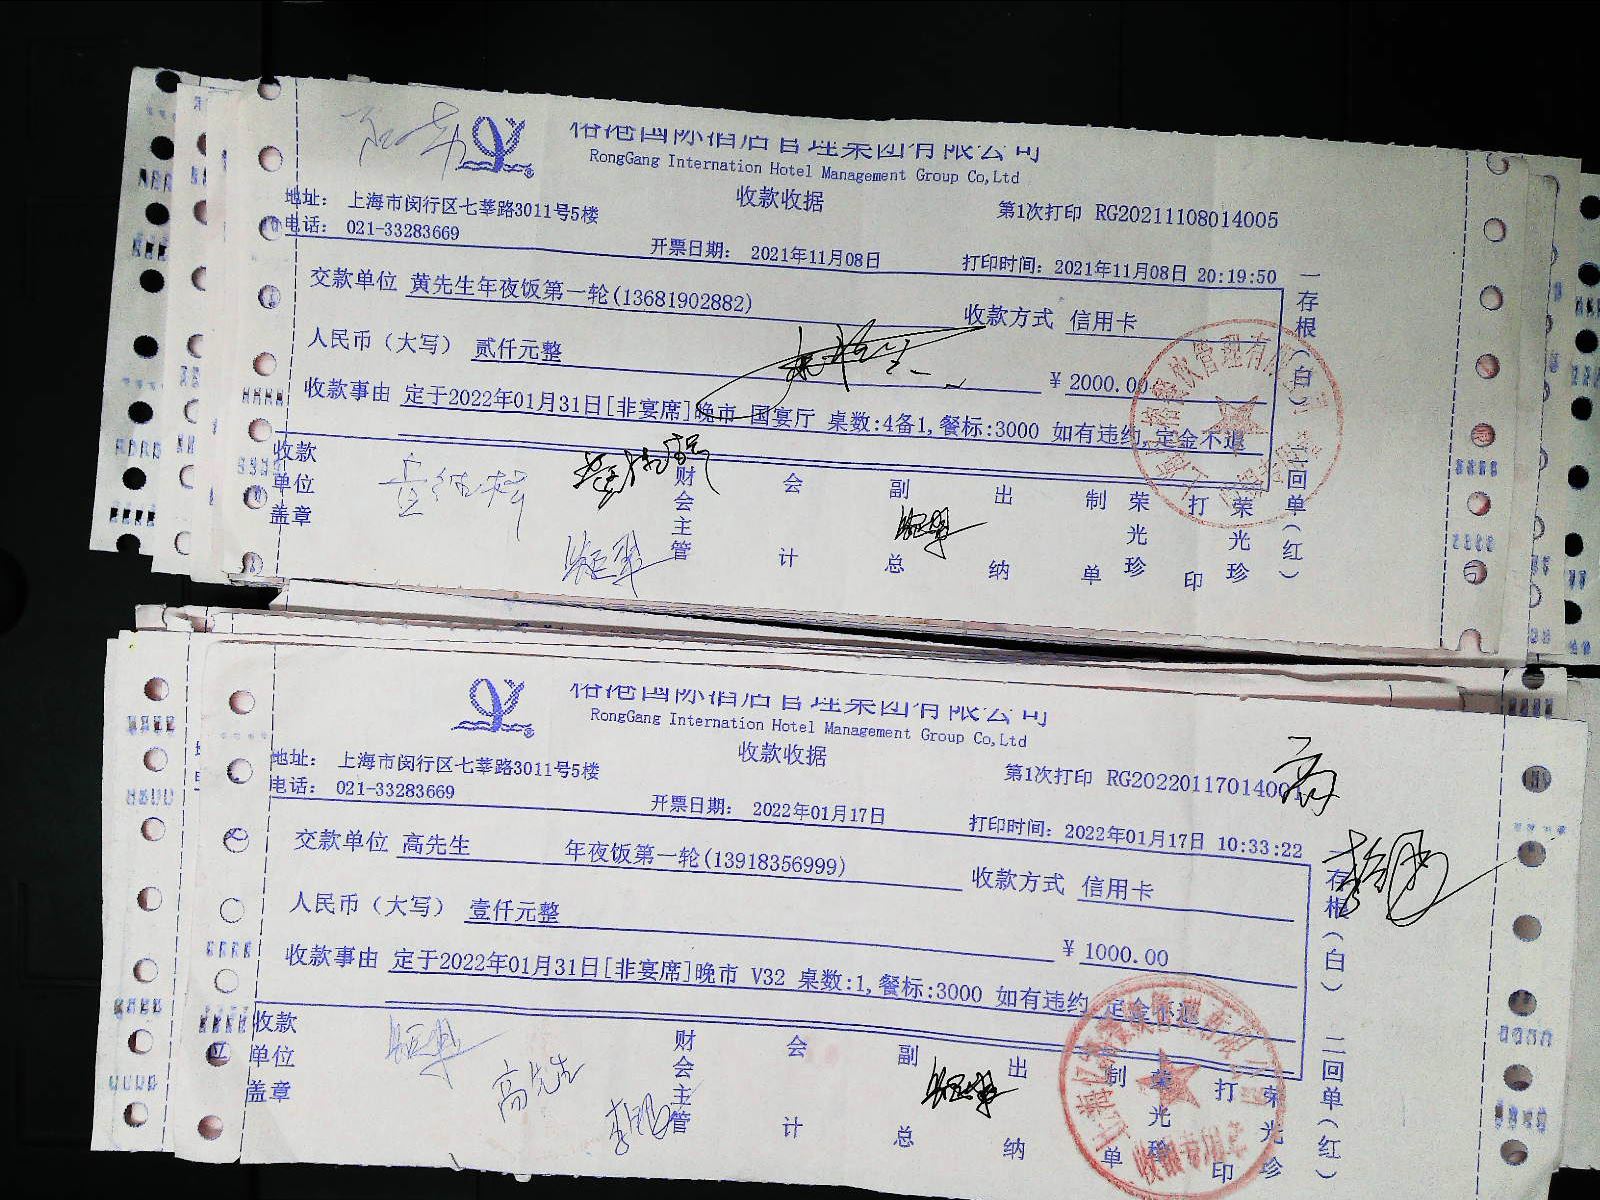 榕港国际酒店管理集团有限公司
RongGang Internation Hotel Management Group Co,Ltd
收款收据
地址： 上海市闵行区七莘路3011号5楼
第1次打印 RG20211108014005
电话： 021-33283669
开票日期： 2021年11月08日
打印时间：2021年11月08日 20:19:50
交款单位 黄先生年夜饭第一轮(13681902882)
收款方式 信用卡
人民币（大写） 贰仟元整
￥ 2000.00
收款事由 定于2022年01月31日[非宴席]晚市 国宴厅 桌数:4备1,餐标:3000 如有违约,定金不退
收款单位盖章
财会主管
会计
副总
出纳
制单
荣光珍
打印
荣光珍
一存根（白）
二回单（红）
榕港国际酒店管理集团有限公司
RongGang Internation Hotel Management Group Co,Ltd
收款收据
地址： 上海市闵行区七莘路3011号5楼
第1次打印 RG20220117014001
电话： 021-33283669
开票日期： 2022年01月17日
打印时间：2022年01月17日 10:33:22
交款单位 高先生 年夜饭第一轮(13918356999)
收款方式 信用卡
人民币（大写） 壹仟元整
￥ 1000.00
收款事由 定于2022年01月31日[非宴席]晚市 V32 桌数:1,餐标:3000 如有违约,定金不退
收款单位盖章
高先生
财会主管
会计
副总
出纳
制单
荣光珍
打印
荣光珍
一存根（白）
二回单（红）
收银专用章